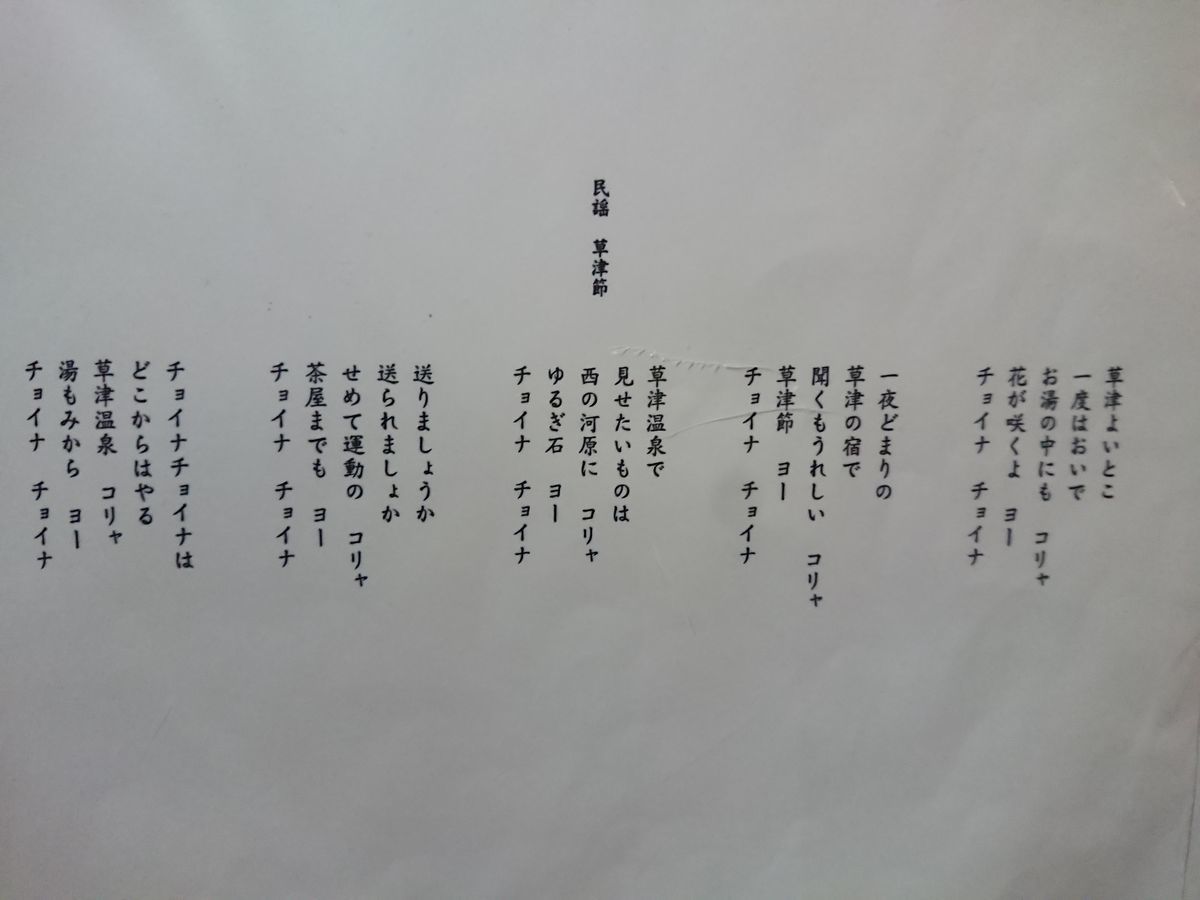 民謡 草津節
草津よいとこ
一度はおいで
お湯の中にも コリャ
花が咲くよ ヨー
チョイナ チョイナ
一夜どまりの
草津の宿で
聞くもうれしい コリャ
草津節 ヨー
チョイナ チョイナ
草津温泉で
見せたいものは
西の河原に コリャ
ゆるぎ石 ヨー
チョイナ チョイナ
送りましょうか
送られましょか
せめて運動の コリャ
茶屋までも ヨー
チョイナ チョイナ
チョイナチョイナは
どこからはやる
草津温泉 コリャ
湯もみから ヨー
チョイナ チョイナ